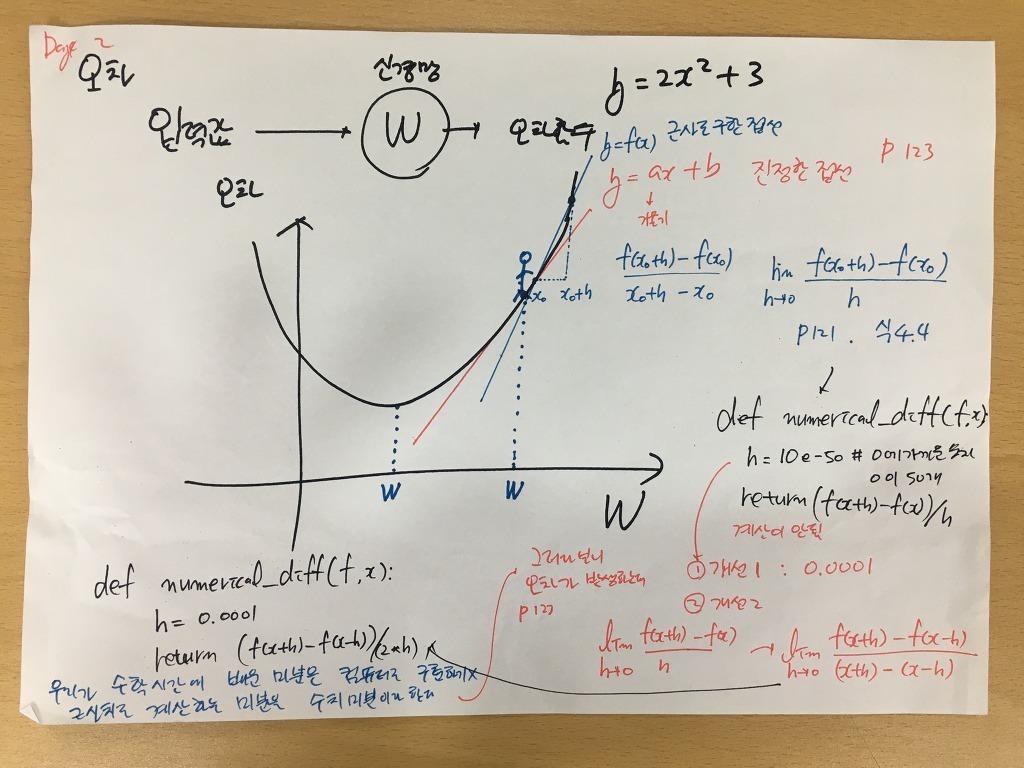 Page 2
오차
신경망
y = 2x² + 3
입력값 → W → 오차함수
y=f(x) 근사로 구한 접선
y = ax + b 진정한 접선 p 123
↓
기울기
오차
x₀ x₀+h
f(x₀+h) - f(x₀) / x₀+h - x₀
lim h→0 f(x₀+h) - f(x₀) / h
p121. 식4.4
def numerical_diff(f,x)
h = 10e-50 # 0에 가까운 숫자
0이 50개
return (f(x+h) - f(x))/h
계산이 안됨
① 개선1 : 0.0001
② 개선2
lim h→0 f(x+h) - f(x) / h → lim h→0 f(x+h) - f(x-h) / (x+h) - (x-h)
W W W
그래도
오차가
p123
def numerical_diff(f,x):
h = 0.0001
return (f(x+h) - f(x-h))/(2*h)
우리가 수학시간에 배운 미분은 컴퓨터로
근사치로 계산하는 미분을 수치미분이라 한다